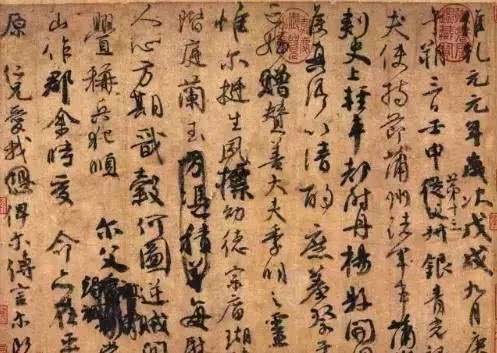 維乾元元年歲次戊戌九月庚
午朔三日壬申第十三從父叔銀青光
夫使持節蒲州諸軍事蒲
刺史上輕車都尉丹楊縣開
侯真卿以清酌庶羞祭于
亡姪贈贊善大夫季明之靈
惟爾挺生夙標幼德宗廟瑚
階庭蘭玉方憑積善每慰
人心方期戩穀何圖逆賊閒
釁稱兵犯順爾父
山作郡余時受命亦在平
原仁兄愛我俾爾傳言爾既